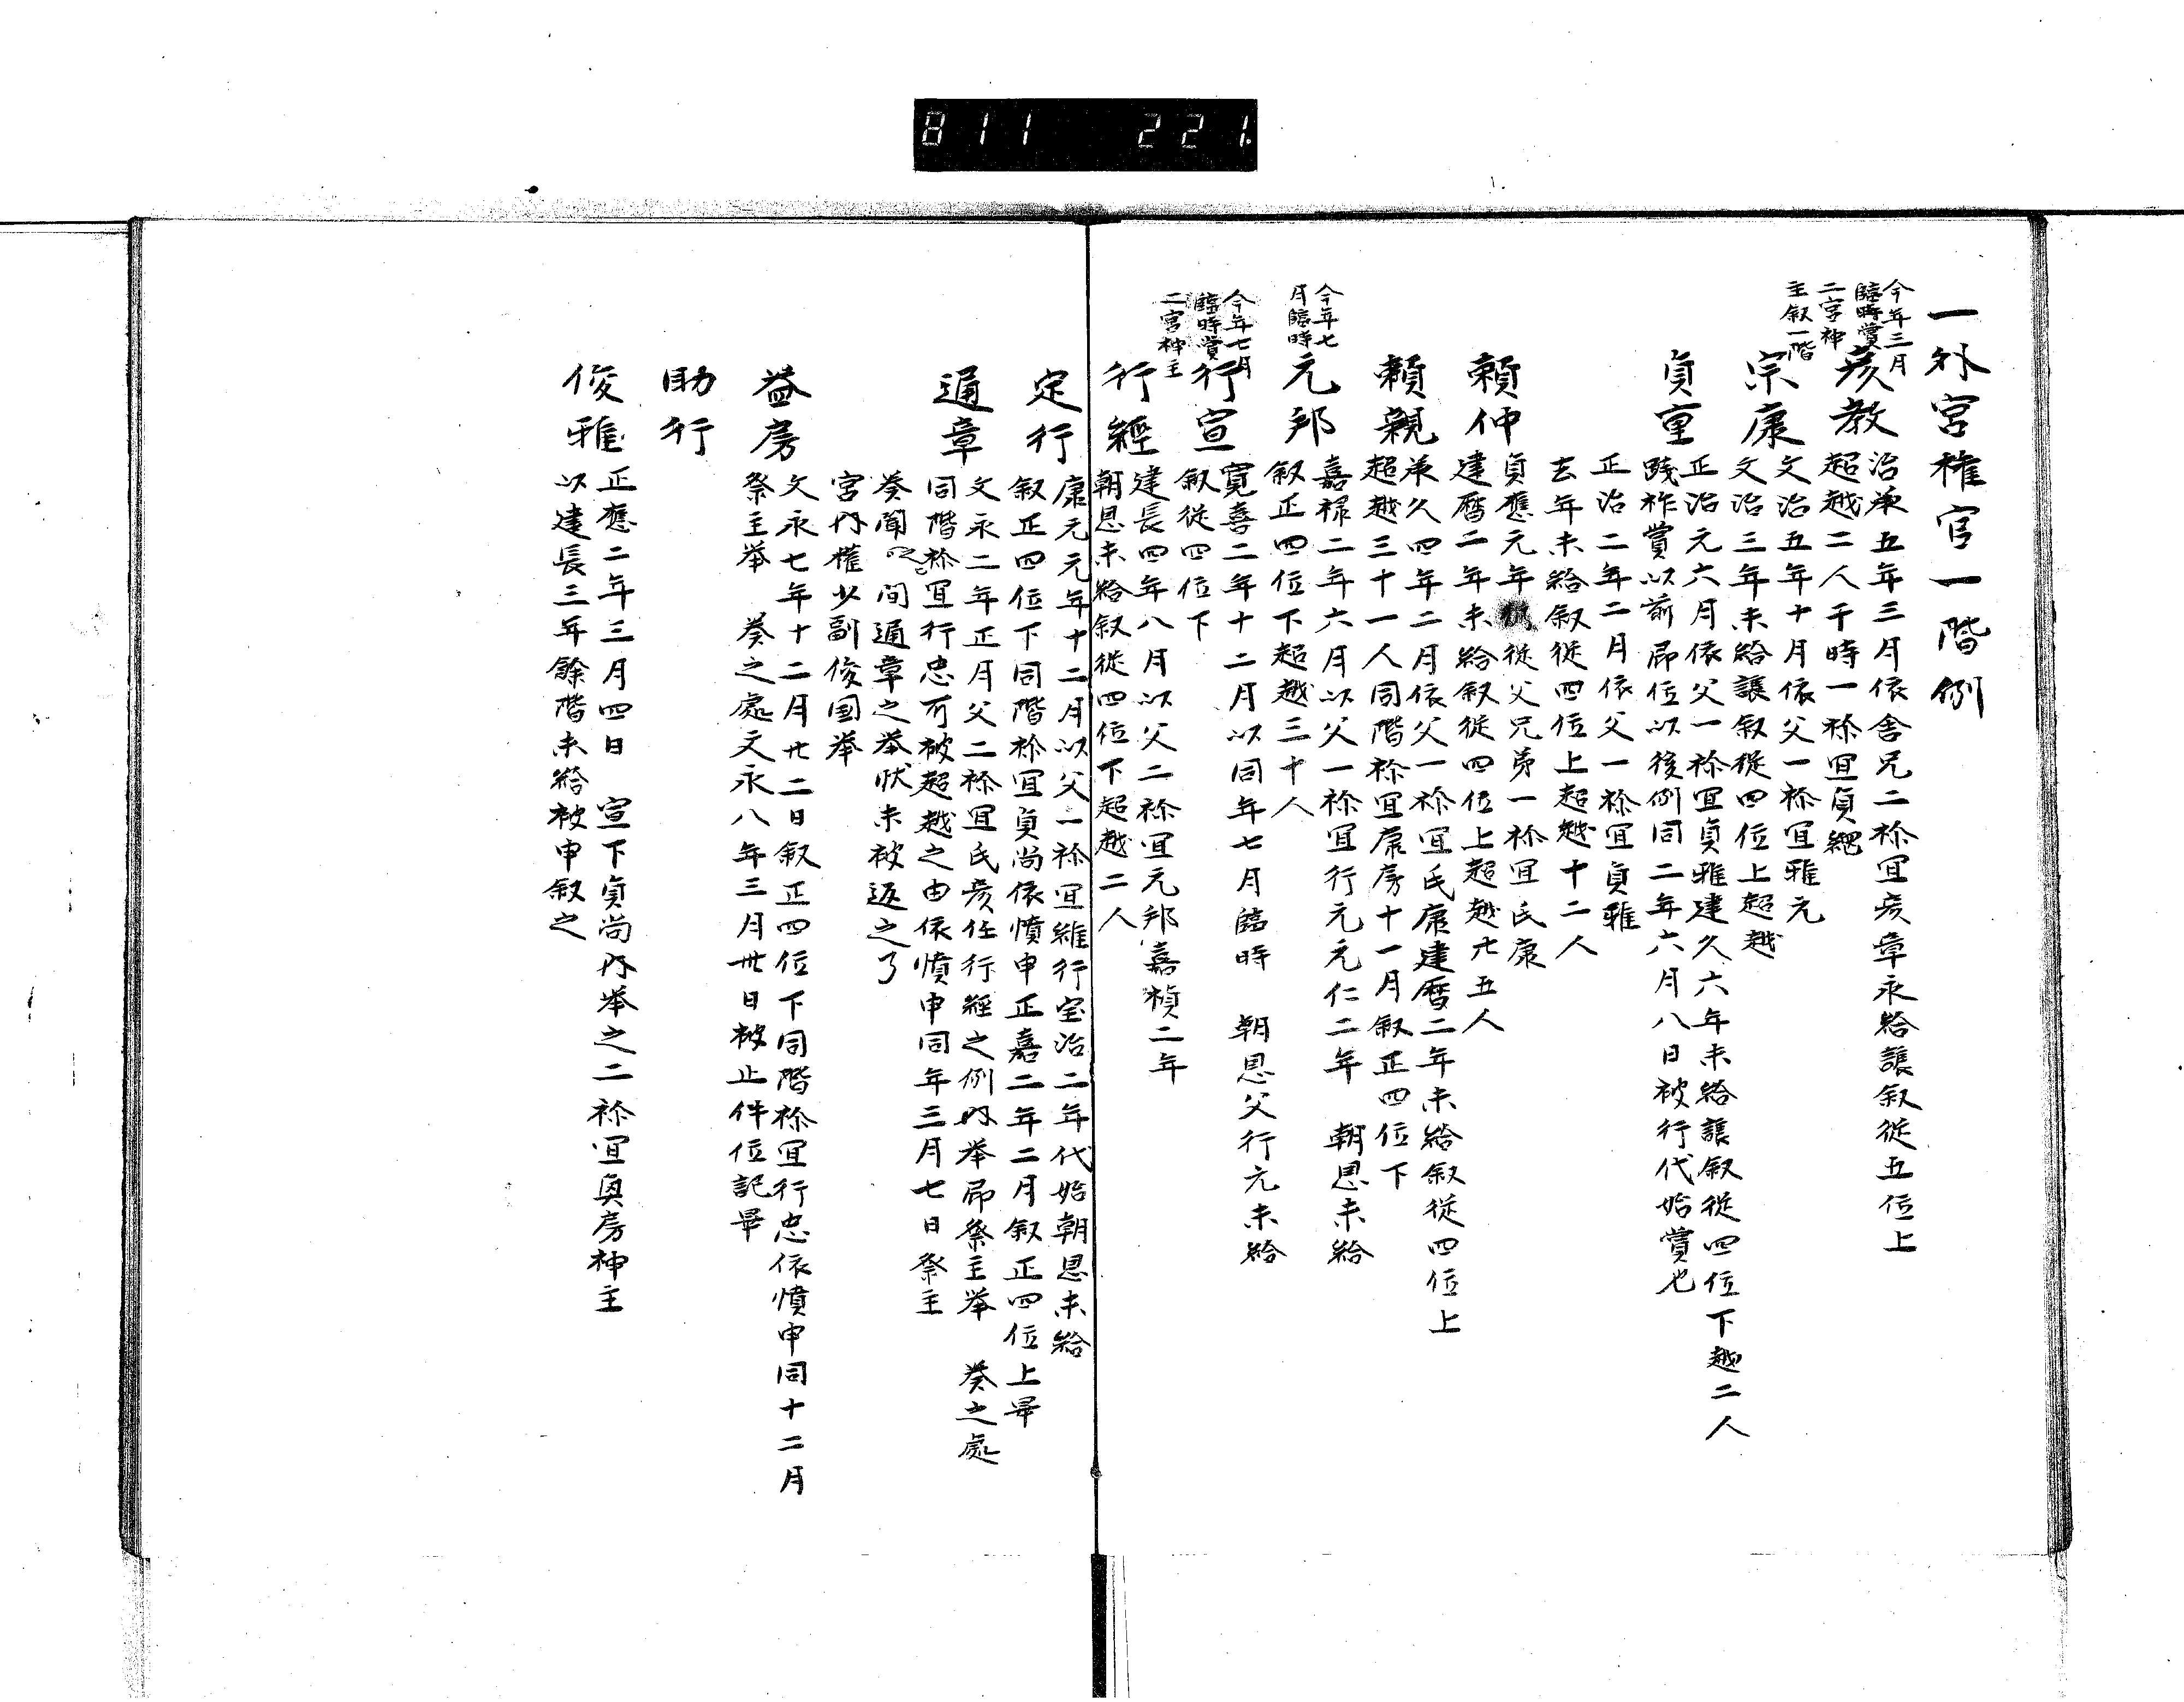 811 221.
一外宮権官一階例
今年三月
臨時賞
二宮神
主叙一階
彦教
治承五年三月依舎兄二祢宜彦章永給譲叙従五位上
超越二人于時一祢宜貞綱
宗康
文治五年十月依父一祢宜雅元
文治三年未給譲叙従四位上超越
貞重
正治元六月依父一祢宜貞雅建久六年未給譲叙従四位下越二人
践祚賞以前即位以後例同二年六月八日被行代始賞也
正治二年二月依父一祢宜貞雅
去年未給叙従四位上超越十二人
頼仲
貞應元年従父兄弟一祢宜氏康
建暦二年未給叙従四位上超越廿五人
頼親
承久四年二月依父一祢宜氏康建暦二年未給叙従四位上
超越三十一人同階祢宜康房十一月叙正四位下
今年七
月臨時
元邦
嘉禄二年六月以父一祢宜行元元仁二年 朝恩未給
叙正四位下超越三十人
今年七月
臨時賞
二宮神主
行宣
寛喜二年十二月以同年七月臨時 朝恩父行元未給
叙従四位下
行經
建長四年八月以父二祢宜元邦嘉禎二年
朝恩未給叙従四位下超越二人
定行
康元元年十二月以父一祢宜維行宝治二年代始朝恩未給
叙正四位下同階祢宜貞尚依憤申正嘉二年二月叙正四位上畢
通章
文永二年正月父二祢宜氏彦任行經之例内挙即祭主挙 奏之處
同階祢宜行忠可被超越之由依憤申同年三月七日祭主
奏聞之間通章之挙状未被返之了
宮内権少副俊国挙
益房
文永七年十二月廿二日叙正四位下同階祢宜行忠依憤申同十二月
祭主挙 奏之處文永八年三月卅日被止件位記畢
助行
俊雅
正應二年三月四日 宣下貞尚内挙之二祢宜奥房神主
以建長三年餘階未給被申叙之